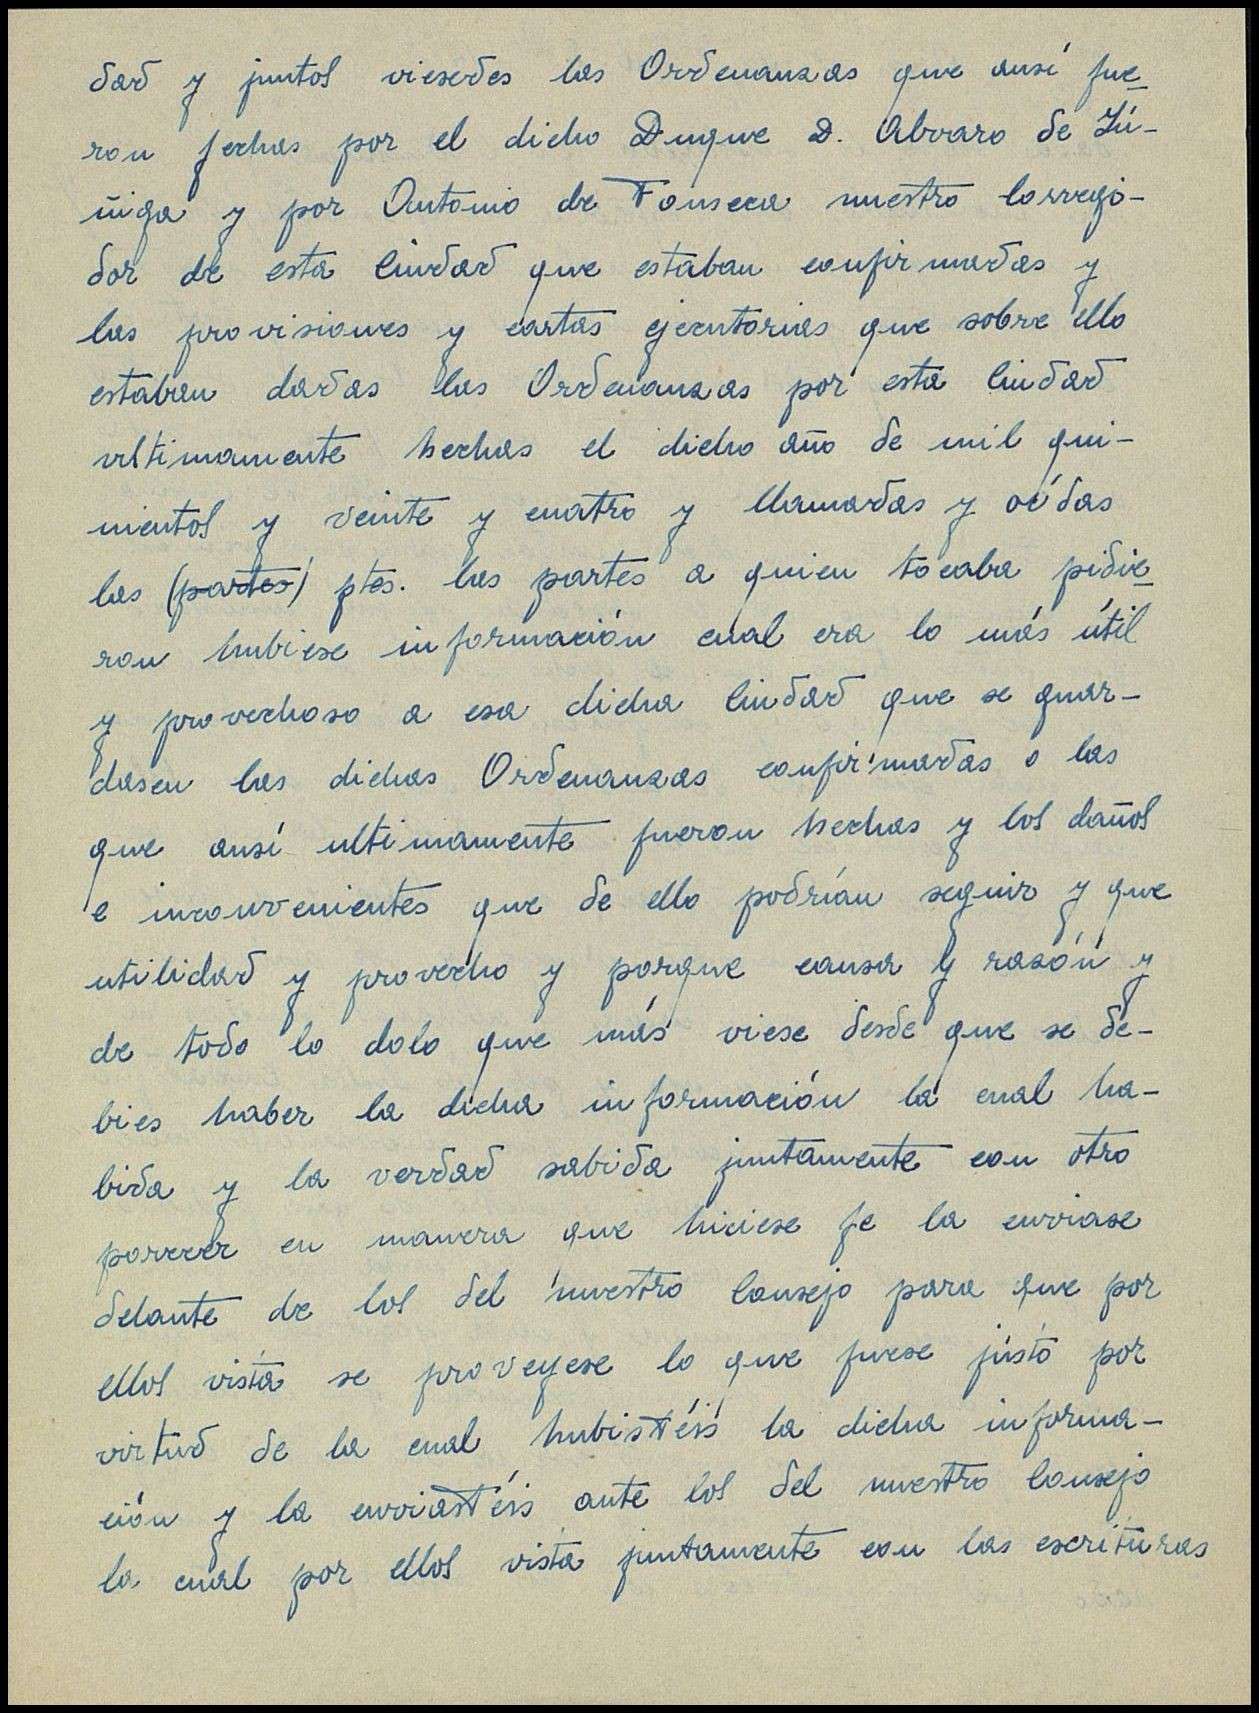 dad y juntos viesedes las Ordenanzas que ansí fue-
ron fechas por el dicho Duque D. Alvaro de Zú-
ñiga y por Antonio de Fonseca nuestro Corregi-
dor de esta Ciudad que estaban confirmadas y
las provisiones y cartas ejecutorias que sobre ello
estaban dadas las Ordenanzas por esta Ciudad
ultimamente hechas el dicho año de mil qui-
nientos y veinte y cuatro y llamadas y oídas
las (partes) ptes. las partes a quien tocaba pidie-
ron hubiese información cual era lo más útil
y provechoso a esa dicha Ciudad que se guar-
dasen las dichas Ordenanzas confirmadas o las
que ansí ultimamente fueron hechas y los daños
e inconvenientes que de ello podrían seguir y que
utilidad y provecho y porque causa y razón y
de todo lo dolo que más viese desde que se de-
bies haber la dicha información la cual ha-
bida y la verdad sabida juntamente con otro
parecer en manera que hiciese fe la enviase
delante de los del nuestro Consejo para que por
ellos vista se proveyese lo que fuese jústo por
virtud de la cual hubistéis la dicha informa-
ción y la enviastéis ante los del nuestro Consejo
la cual por ellos vista juntamente con las escrituras